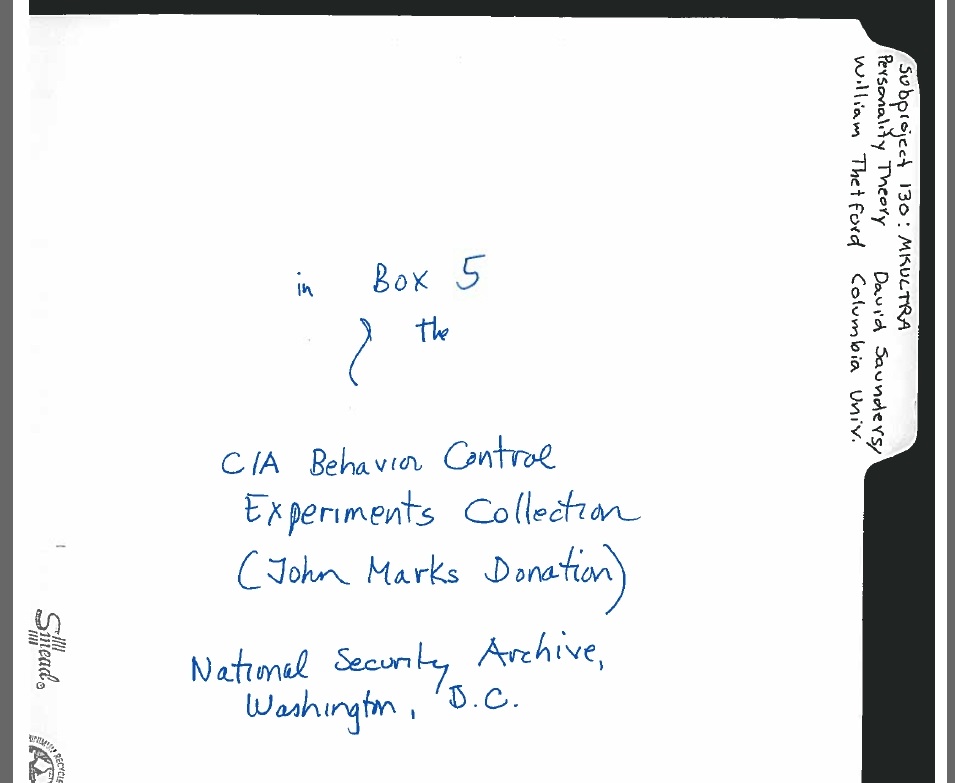 Subproject 130: MKULTRA
Personality Theory David Saunders/
William Thetford Columbia Univ.
in Box 5
the
CIA Behavior Control
Experiments Collection
(John Marks Donation)
National Security Archive,
Washington, D.C.
Smead